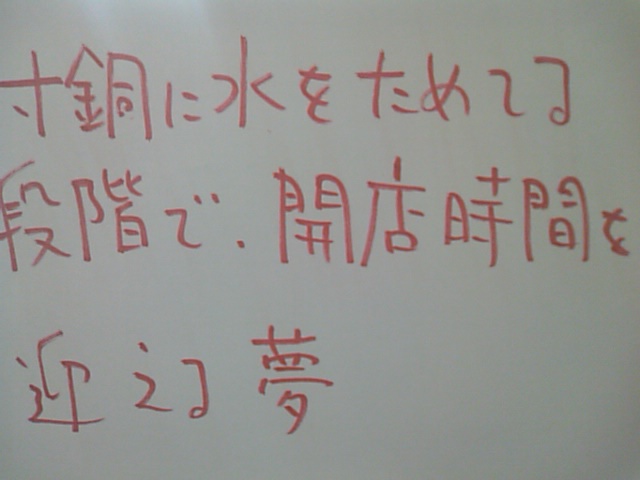 寸銅に水をためてる
段階で、開店時間を
迎える夢